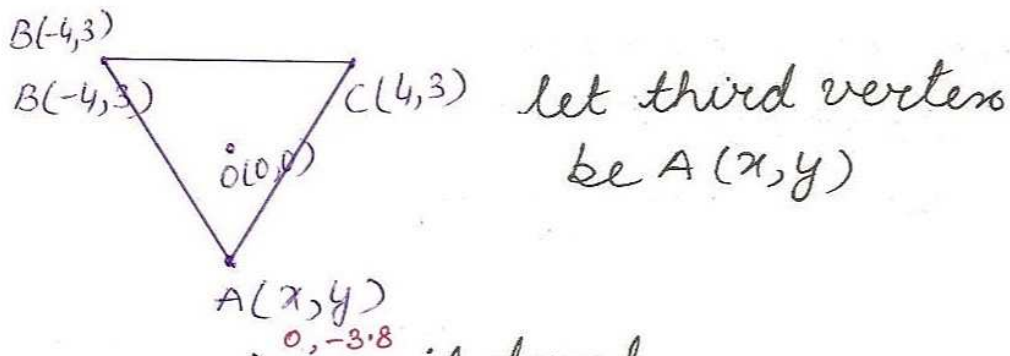 B(-4,3)
B(-4,3) C(4,3) let third vertex
O(0,0) be A(x,y)
A(x,y)
0,-3.8